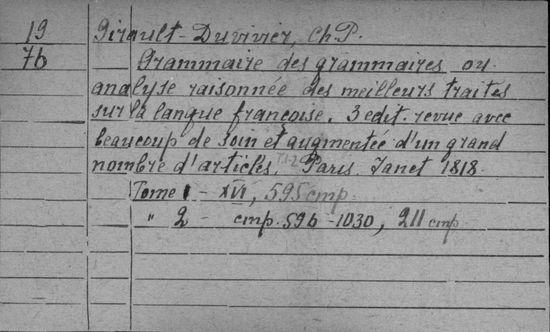 19 Girault-Duvivier, Ch.P.
7b Grammaire des grammaires ou
analyse raisonnée des meilleurs traités
sur la langue françoise. 3 edit. revue avec
beaucoup de soin et augmentée d'un grand
nombre d'articles. T.1-2 Paris. Janet 1818.
Tome 1 - XVI, 595 cmp.
" 2 - cmp. 596 - 1030, 211 cmp.